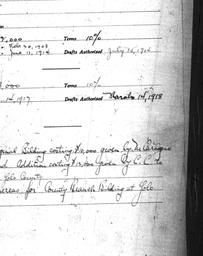 ,000 Terms 10%
Feb 20, 1903
June 11, 1914 Drafts Authorized July 16, 1914
,000 Terms 10%
1917 Drafts Authorized March 14, 1918
Building costing $12,000 given by McCarnegie
Addition costing $12,000 given By C. C. to
Yolo County
for County Branch Building at Yolo